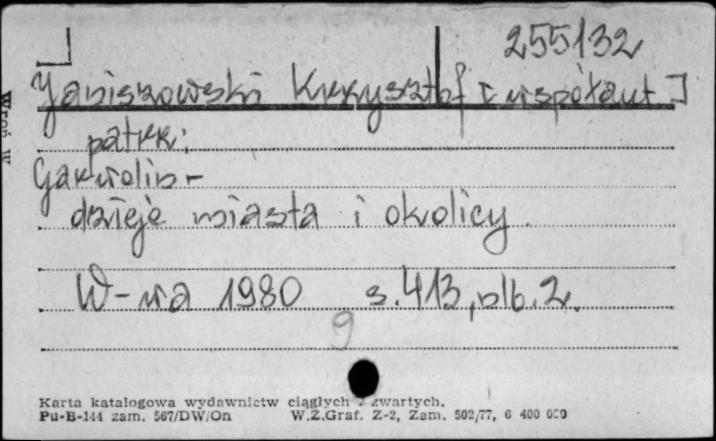 255132
Janiszowski Krzysztof [współaut]
patrz:
Garwolin -
dzieje miasta i okolicy.
W-wa 1980 s. 413, nlb. 2.
9
Karta katalogowa wydawnictw ciągłych i zwartych.
Pu-B-144 zam. 567/DW/On W.Z.Graf. Z-2, Zam. 502/77, 6 400 000